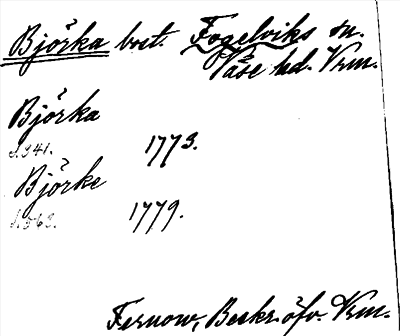 Björka bost. Fogelviks sn.
Väse hd. Vrm.
Björka
s. 341. 1773.
Björke
s. 563. 1779.
Fernow, Beskr. öfv. Vrm.